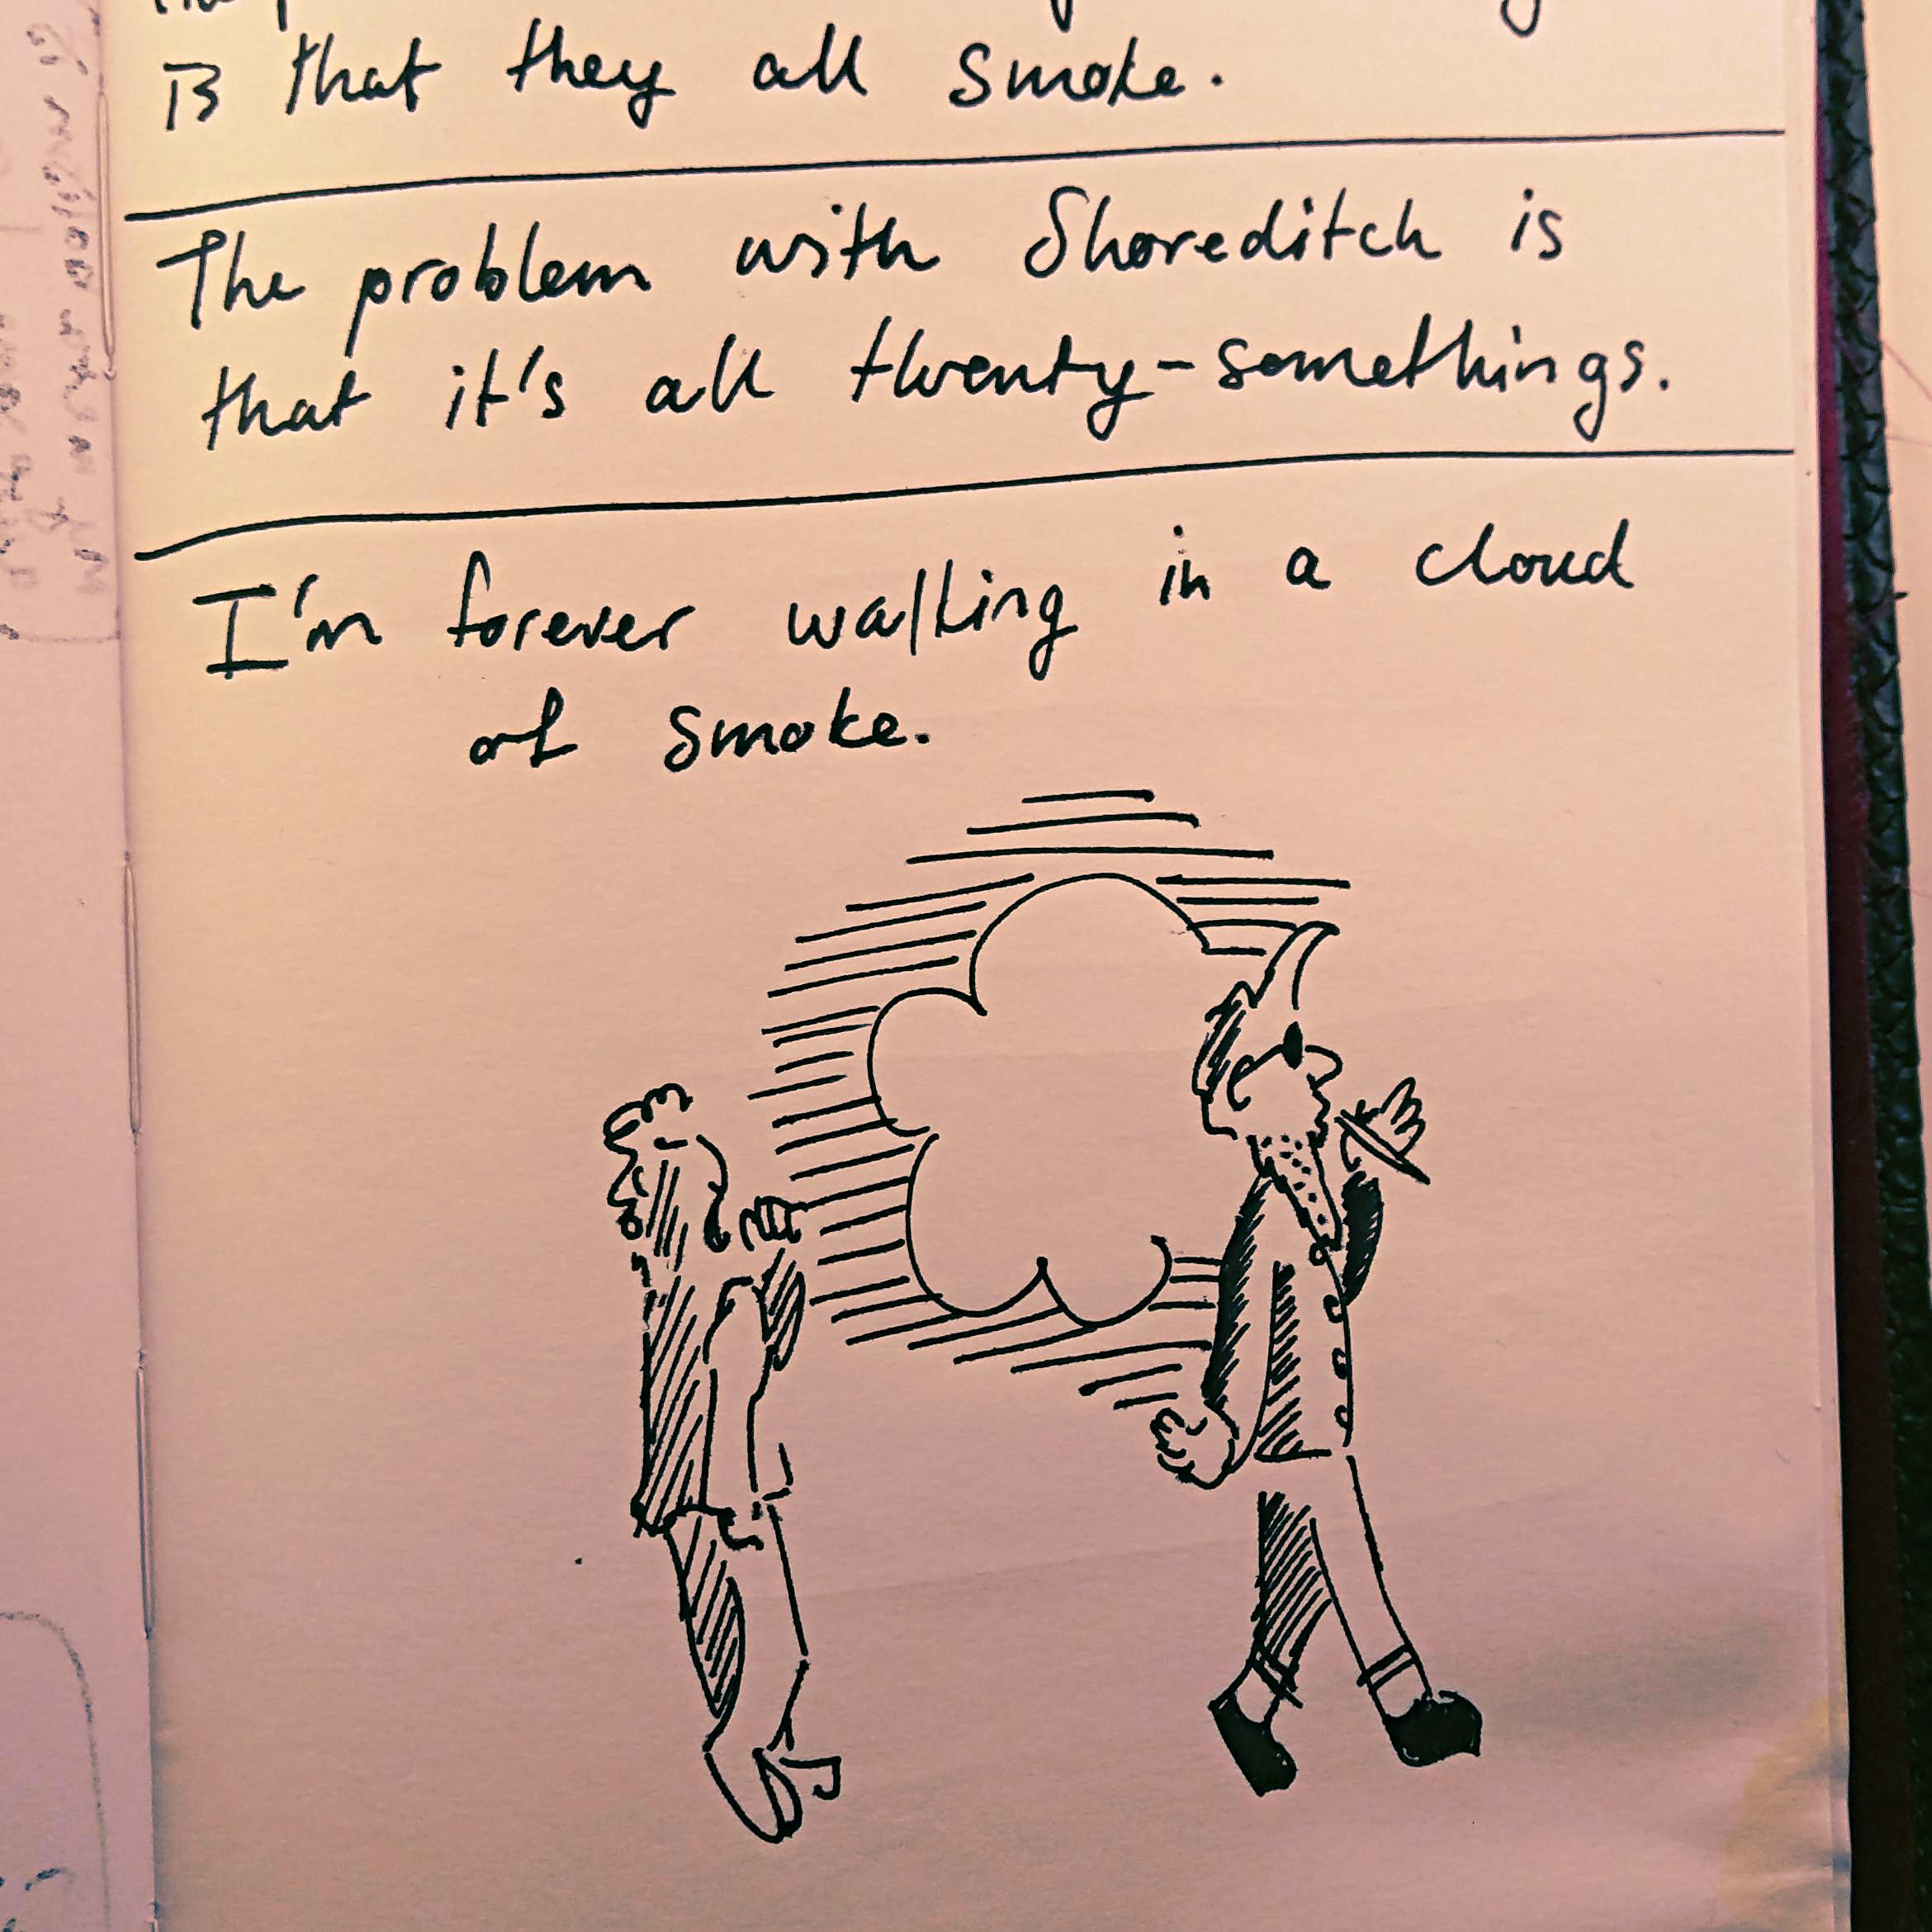 is that they all smoke.
The problem with Shoreditch is
that it's all twenty-somethings.
I'm forever walking in a cloud
of smoke.